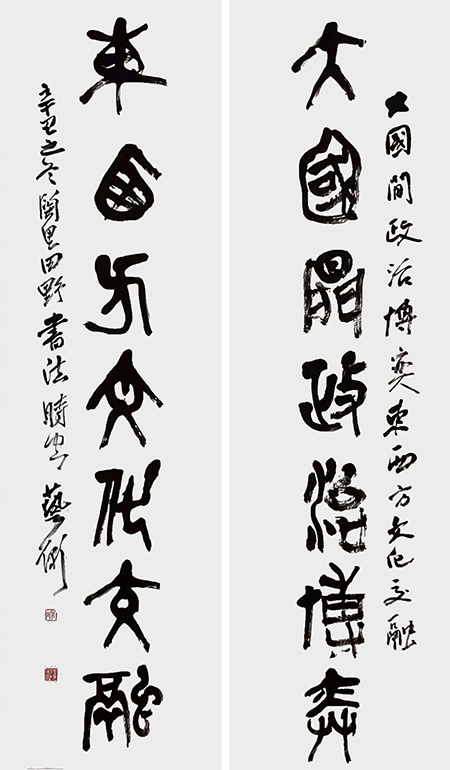 大國間政治博奕東西方文化交融
大國間政治博弈
東西方文化交融
辛丑之冬闕里田野書法時空藝術